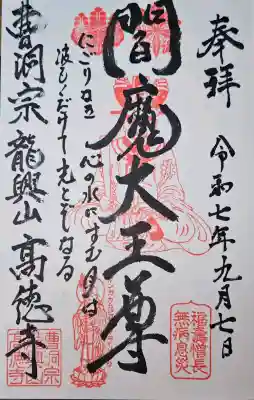 奉拝
令和七年九月七日
閻魔大王尊
にごりなき
心の水にすむ月は
波もくだけて光とぞなる
曹洞宗 龍興山 高徳寺
福寿増長
無病息災